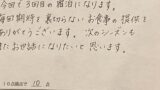 今回で3回目の宿泊になります。
毎回期待を裏切らないお食事の提供を
ありがとうございます。 次のシーズンも
またお世話になりたいと思います。
10点満点で 10 点